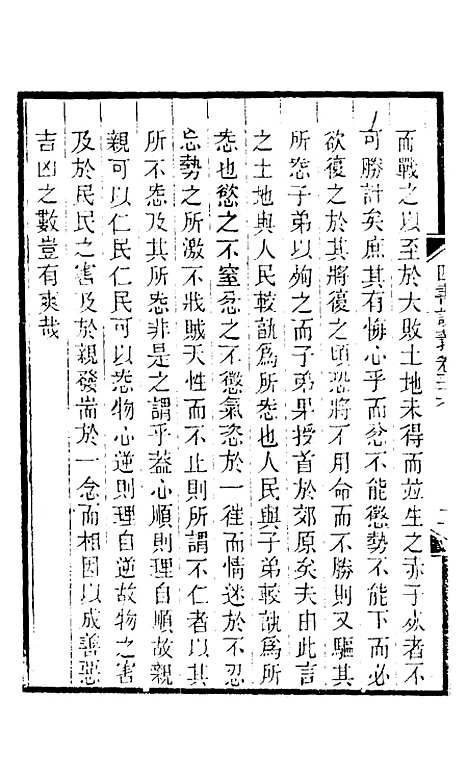 而戰之以至於大敗土地未得而並生之赤子死者不
可勝計矣庶其有悔心乎而忿不能懲勢不能下而必
欲復之於其將復之頃恐將不用命而不勝則又驅其
所愛子弟以殉之而子弟果授首於郊原矣夫由此言
之土地與人民較孰為所愛也人民與子弟較孰為所
愛也慾之不窒忿之不懲氣恣於一往而情迷於不忍
忘勢之所激不戕賊天性而不止則所謂不仁者以其
所不愛及其所愛非是之謂乎蓋心順則理自順故親
親可以仁民仁民可以愛物心逆則理自逆故物之害
及於民民之害及於親發耑於一念而相因以成善惡
吉凶之數豈有爽哉
四書訓義卷三十八